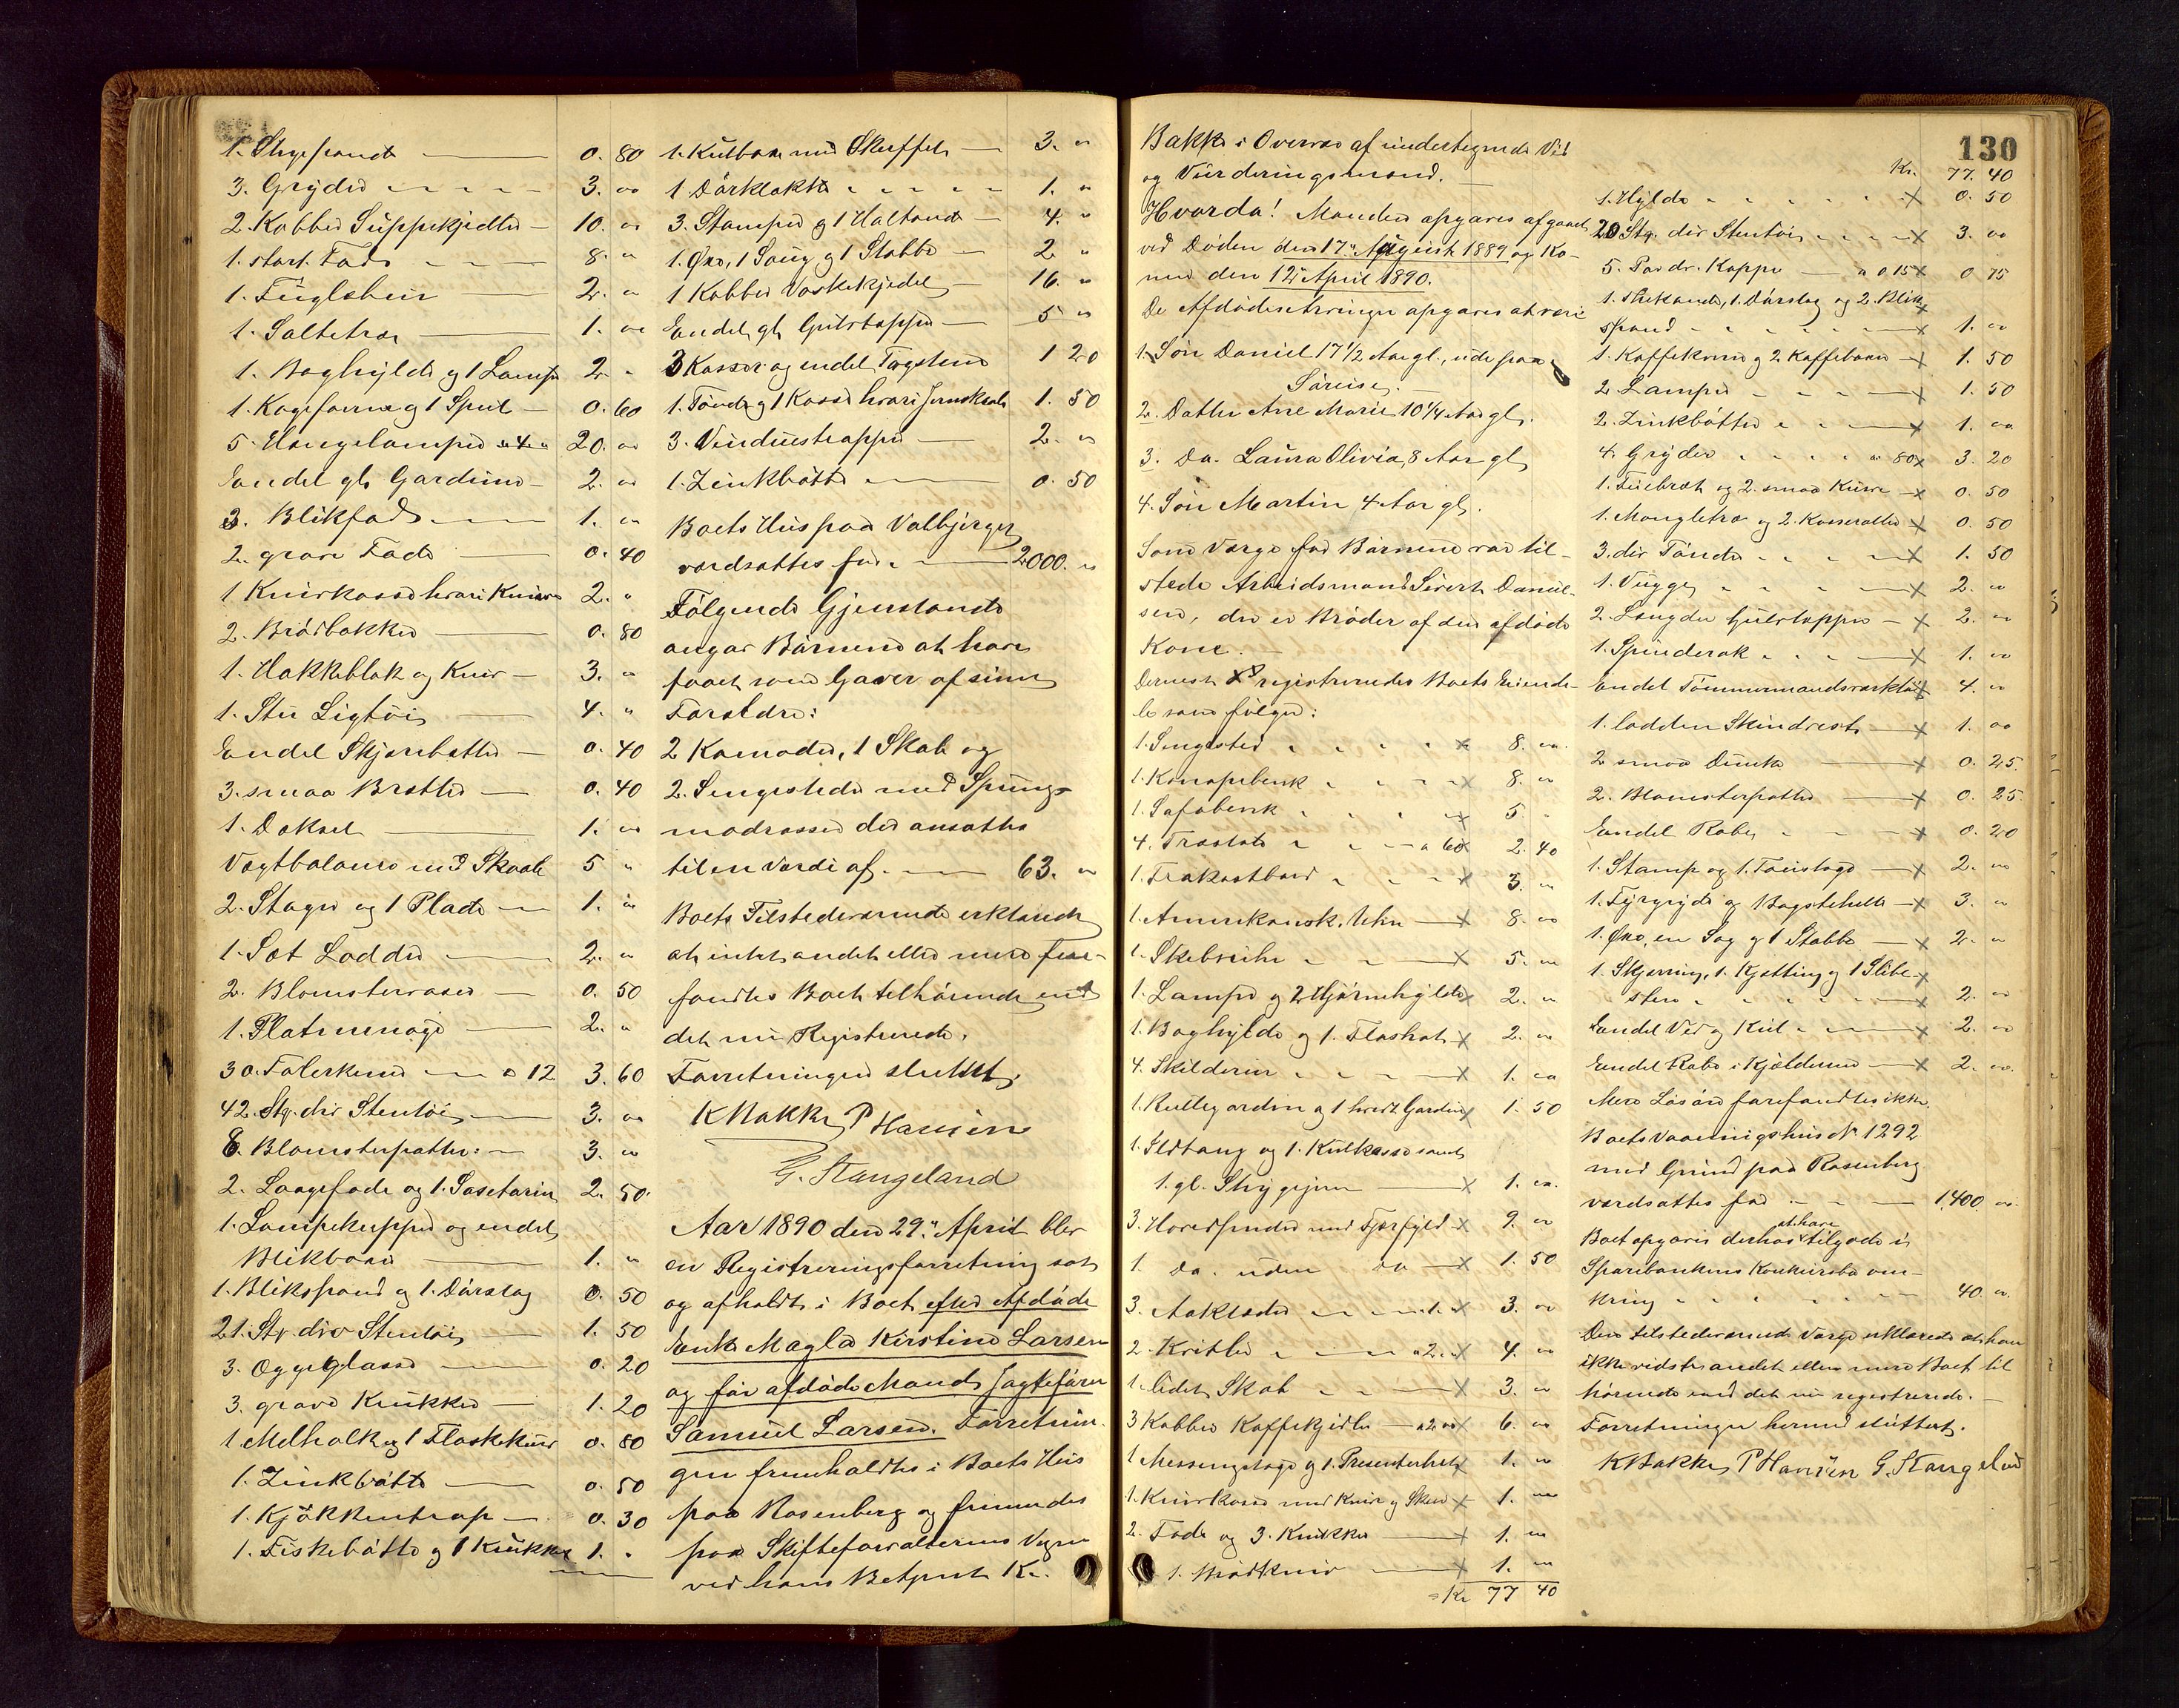 1. Stegepande 0. 80
3. Gryder 3. "
2. Kobber Suppekjedler 10. "
1. stort Fad 8. "
1. Fuglebur 2. "
1. Saltetræ 1. "
1. Boghylde og 1 Lampe 2. "
1. Kageform og 1 Speil 0. 60
5. Hængelamper a 4. " 20. "
Endel gl. Gardiner 2. "
3. Blikfade 1. "
2. grove Fade 0. 40
1 Knivkasse hvori Knive 2. "
2. Brödbakker 0. 80
1. Hakkeblok og Kniv 3. "
1. Stk Ligtöi 4. "
Endel Skjærebætter 0. 40
3. smaa Bretter 0. 40
1. Doksel 1. "
Vægtbalance med Skaale 5 "
2. Stager og 1 Plade 1. "
1. Sæt Lodder 2. "
2. Blomstervaser 0. 50
1. Platmenage 2. "
30. Talerkener a 12 3. 60
42. Stk. div Stentöi 3. "
8. Blomsterpotter 3. "
2. Laagefade og 1. Sosetarin 2. 50.
1. Lampekuppel og endel
Blikboxe 1. "
1. Blikspand og 1. Dörslag 0. 50
21. Stk div Stentöi 1. 50
3. Æggeglasse 0. 20
3. grove Krukker 1. 20
1 Melholk og 1 Flaskekurv 0. 80
1. Zinkbötte 0. 50
1. Kjökkentrap 0. 30
1. Fiskebötte og 1 Krukke 1. "
1. Kulboxe med Skuffel 3. "
1 Dörklokke 1. "
3. Stamper og 1 Haltönde 4. "
1. Öxe, 1 Saug og 1 Stabbe 2 "
1 Kobber Vaskekjedel 16. "
Endel gl. Gulvtæpper 5 "
3 Kasser og endel Tagstene 1 20
1. Tönde og 1 Kasse hvori Jernskrab 1. 50
3. Vinduestrapper 2. "
1. Zinkbötte 0. 50
Boets Hus paa Valbjerget
værdsattes for 2000. "
Fölgende Gjenstande
angav Börnene at have
faaet som Gaver af sine
Forældre:
2 Komoder, 1 Skab og
2. Sengesteder med Spring-
madrasser der ansattes
til en Værdi af 63. "
Boets Tilstedeværende erklærede
at intet andet eller mere fore-
fandtes Boet tilhörende end
det nu Registrerede.
Forretningen sluttet.
K Bakke P Hansen
G. Stangeland
Aar 1890 den 29. April blev
en Registreringsforretning sat
og afholdt i Boet efter Afdöde
Enke Magla Kirstine Larsen
og för afdöde Mand, Jagteförer
Samuel Larsen. Forretnin-
gen fremholdtes i Boets Hus
paa Rosenberg og fremmedes
paa Skifteforvalterens Vegne
ved hans Betjent K.
Bakke i Overvær af undertegnede Vid
og Vurderingsmænd.
Hvorda! Manden opgaves afgaaet
ved Döden den 17. August 1889 og Ko-
nen den 12. April 1890.
De Afdödes Arvinger opgaves at være
1. Sön Daniel 17 1/2 Aar gl., ude paa
Söreise.
2. Datter Ane Marie 10 1/4 Aar gl.
3. Do. Laura Olivia, 8 Aar gl
4. Sön Martin 4 Aar gl.
Som Værge for Börnene var til-
stede Arbeidsmand Sivert Daniel-
sen, der er Broder af den afdöde
Kone.
Dernest registreredes Boets Eiende-
le som fölger:
1. Sengested x 8. "
1. Kanapebenk x 8. "
1. Sofabenk x 5 "
4. Træstole a 60 x 2. 40
1. Frokostbord x 3. "
1. Amerikansk. Uhr x 8. "
1. Skibsuhr x 5. "
1. Lampe og 2 Hjörnehylder x 2. "
1. Boghylde og 1. Flaskest x 2. "
4. Skilderier x 1. "
1. Rullegardin og 1 hvidt Gardin x 1. 50
1. Ildtang og 1. Kulkasse samt
1. gl. Strygejern x 1. "
3. Hovedpuder med Fjærfyld x 9. "
1. Do. uden do x 1. 50
3. Aaklæder a 1. " x 3. "
2. Kvitler a 2. " x 4. "
1. lidet Skab x 3. "
3 Kobber Kaffekjedler a 2. " x 6. "
1 Messingstage og 1. Presenterbret x 1. "
1. Knivkasse med Knive og Skeer x 1. "
2. Fade og 3. Krukker x 1. "
1. Brödkniv x 1. "
Kr 77 40
130
Kr. 77. 40
1. Hylde x 0. 50
20 Stk. div Stentöi x 3. "
5. Par dr. Kopper a 0.15 x 0 75
1. Stekande, 1. Dörslag og 2. Blik
spand x 1. "
1. Kaffekvern og 2. Kaffeboxe x 1. 50
2 Lamper x 1. 50
2. Zinkbötter x 1. "
4. Gryder a 80 x 3. 20
1. Fuebræt og 2. smaa Kurve x 0. 50
1. Mangletræ og 2. Kasseroller x 0. 50
3. div Tönder x 1. 50
1. Vugge x 2. "
2. Længder Gulvtæpper x 2. "
1. Spinderok x 1. "
Endel Tömmermandsværktöi x 4. "
1. lodden Skindvest x 1. "
2 smaa Dunke x 0. 25.
2. Blomsterpotter x 0. 25
Endel Kober x 0. 20
1. Stamp og 1. Tourstage x 2. "
1. Fyrgryde og 1 Bagstehelle x 3. "
1. Öxe, en Sag og 1 Stabbe x 2. "
1. Skjæring, 1. Kjetting og 1 Slibe-
sten x 2. "
Endel Ved og Kul x 2. "
Endel Kabe i Kjelderen x 2. "
Mere Lösöre forefandtes ikke.
Boets Vaaningshus N. 1292
med Grund paa Rosenberg
værdsattes for 1,400 "
Boet opgaves derhos at have tilgode i
Sparebankens Konkursbo om-
kring 40. "
Den tilstedeværende Værge erklærede at han
ikke vidste andet eller mere Boet til
hörende end det nu registrerede.
Forretningen hermed sluttet.
K Bakke P Hansen G. Stangeland